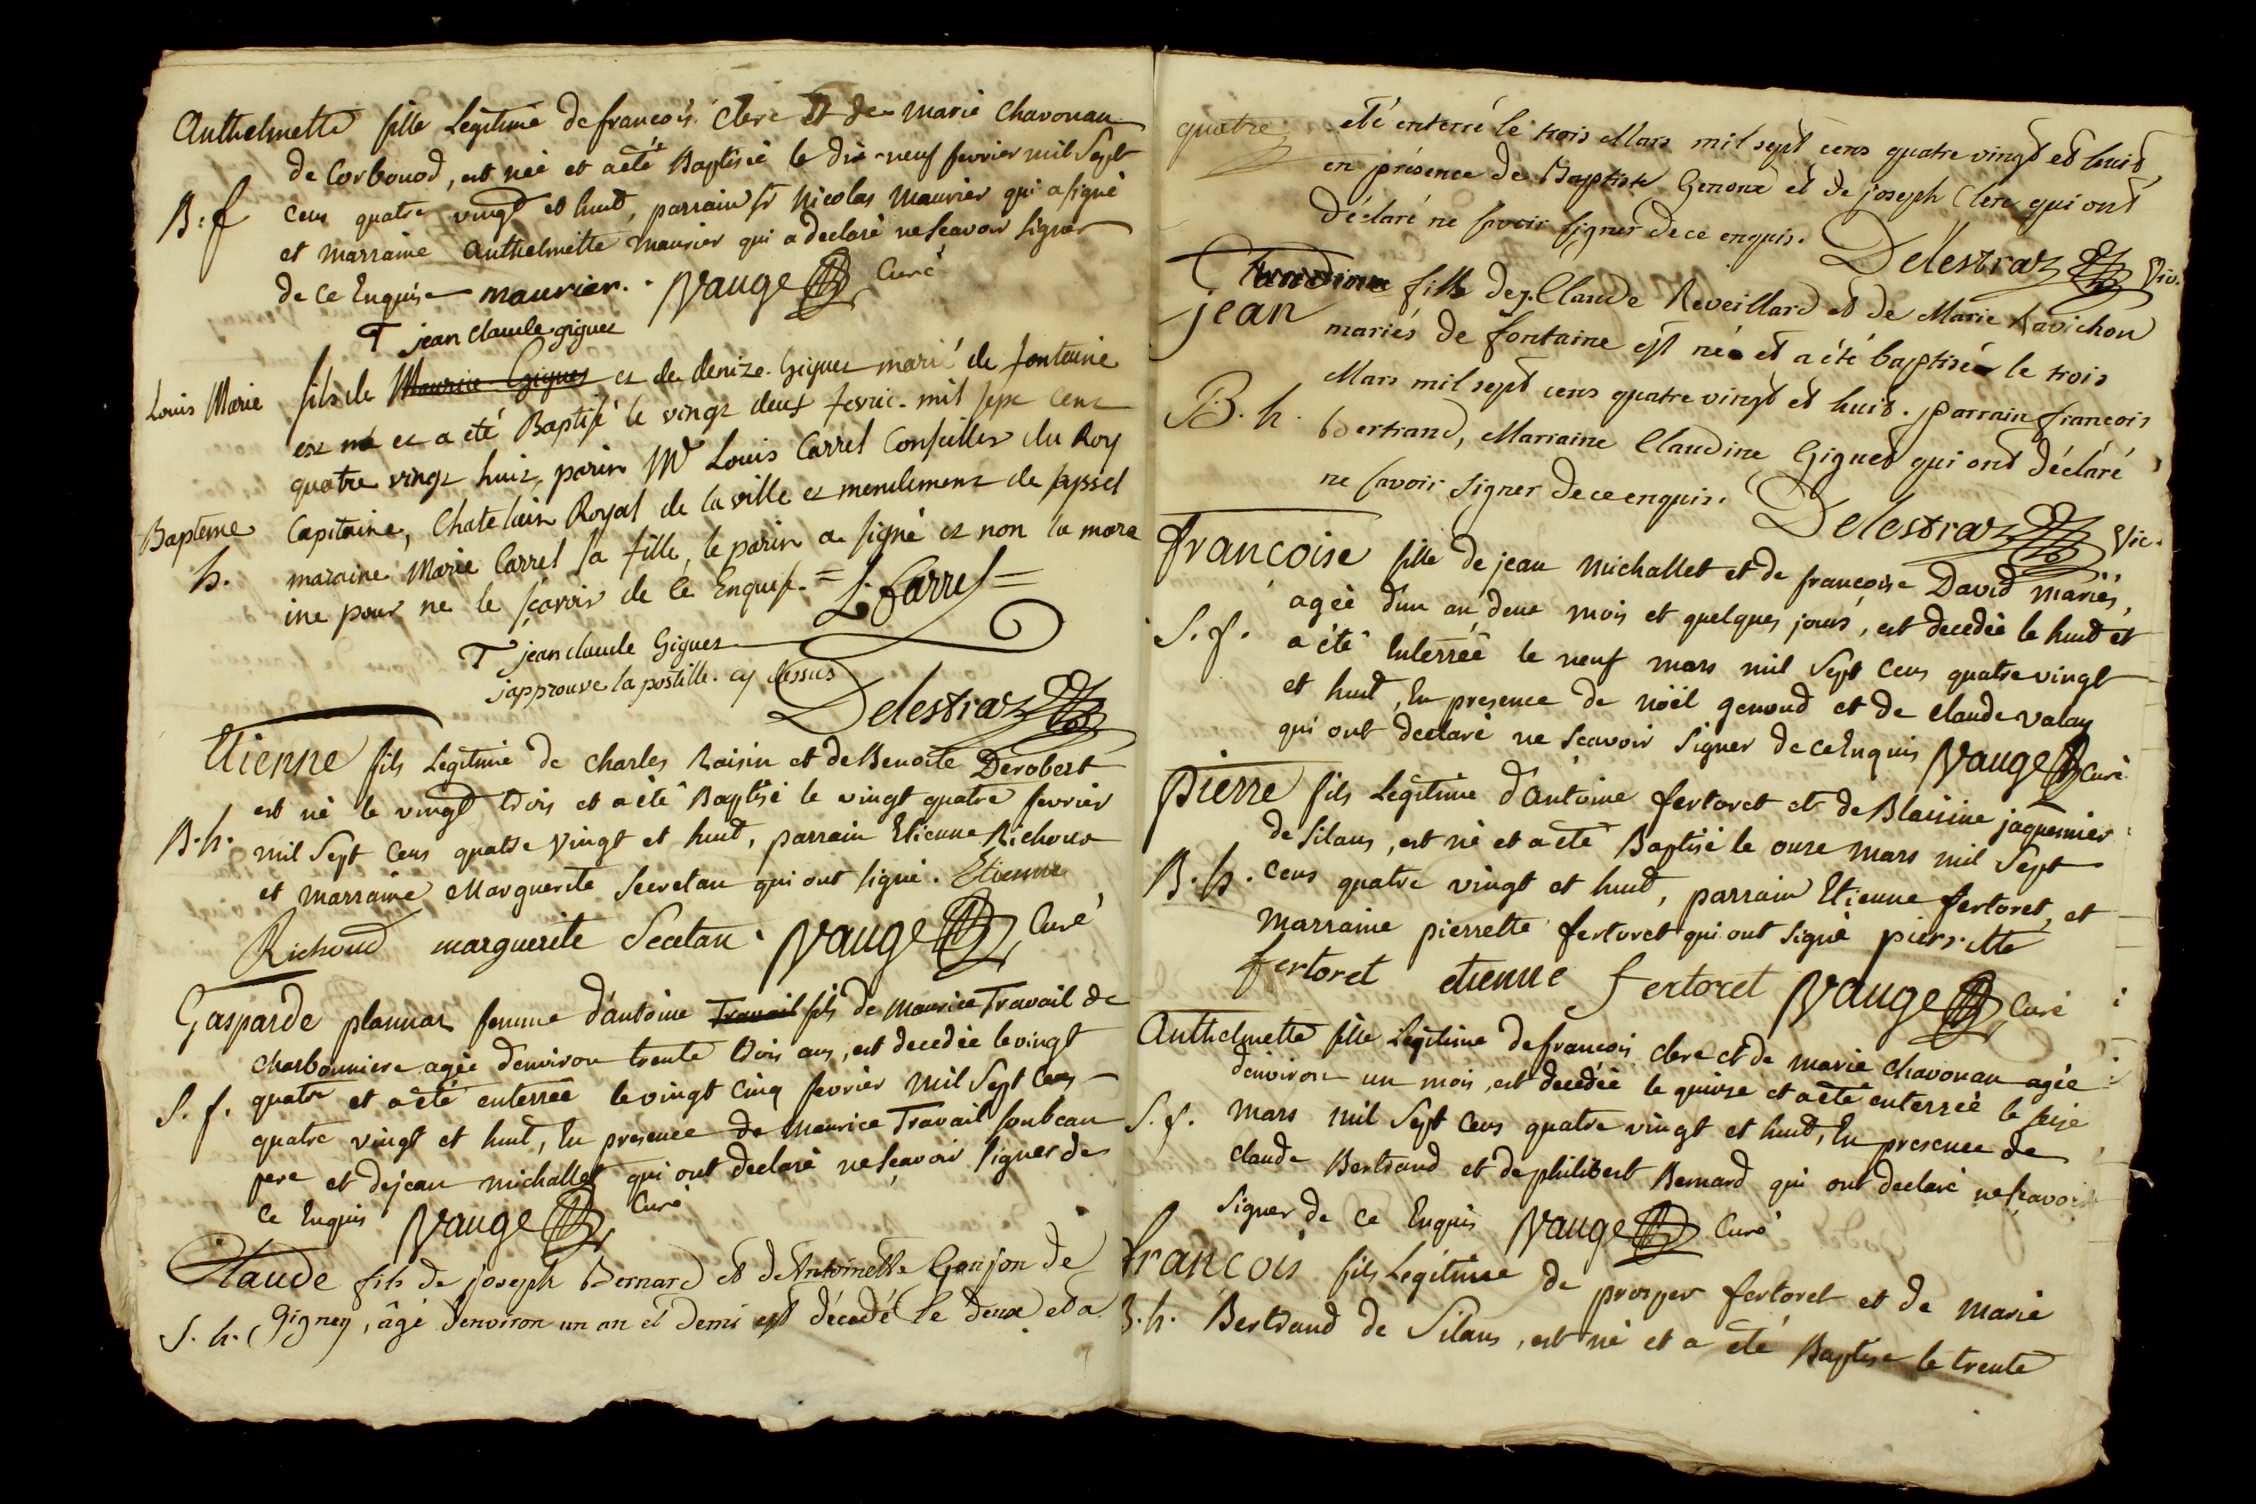 Anthelmette fille Legitime de francois Clerc Et de Marie Chavonau
de Corbonod, est née et a été Baptisée le dix-neuf fevrier mil Sept
B: f Cens quatre vingt et huit, parrain sr Nicolas Maurier qui a signé
et Marraine Anthelmette Maurier qui a declaré ne Scavoir Signer
de Ce Enquise maurier. Vauge Curé
T jean claude giguez
Louis Marie fils de Maurice Giguez et de denize Giguez marié de fontaine
est né et a été Baptisé le vingt deux fevrie mil sept cent
quatre vingt huit, parin Mr Louis Carrel Conseiller du Roy
Bapteme Capitaine, Chatelain Royal de la ville et mendement de seyssel
h. maraine Marie Carrel sa fille, le parin a signé et non la mara
ine pour ne le sçavoir de ce Enquise. = L. Carrel =
T jean claude Giguez
japprouve la postille cy dessus
Delestraz
Etienne fils Legitime de Charles Raisin et de Benoite Derobert
est né le vingt trois et a été Baptisé le vingt quatre fevrier
B. h. mil Sept Cens quatre Vingt et huit, parrain Etienne Richoud
et marraine Marguerite Secretan qui ont signé. Etienne
Richoud marguerite Secetan. Vauge Curé
Gasparde plannaz femme d'antoine Travail fils de Maurice Travail de
charbonniere agée d'environ trente trois ans, est decedée le vingt
S. f. quatre et a été enterrée le vingt Cinq fevrier Mil Sept Cens
quatre vingt et huit, En presence de Maurice Travail son beau
pere et de jean michallet qui ont declaré ne sçavoir signer de
Ce Enquis Vauge Curé
Claude fils de joseph Bernard et de Antoinette Gonjon de
S. h. Gigney, âgé d'environ un an et demi est décedé le deux et a
quatre été enterré le trois Mars mil sept cens quatre vingt et huit,
en présence de Baptiste Genoux et de joseph Clerc qui ont
déclaré ne savoir signer de ce enquis. Delestraz Vic.
Claudine fille de j. Claude Reveillard et de Marie Ravichon
jean mariés de fontaine est né et a été baptisé le trois
Mars mil sept cens quatre vingt et huit. parrain francois
B. h. Bertrand, Marraine Claudine Giguet qui ont déclaré
ne savoir signer de ce enquis. Delestraz Vic.
francoise fille de jean Michallet et de francoise David mariés,
agée d'un an deux mois et quelques jours, est decedée le huit et
S. f. a été Enterrée le neuf mars mil Sept Cens quatre vingt
et huit, En presence de noël genoud et de Claude Valay
qui ont declaré ne Scavoir Signer de ce Enquis Vauge Curé
Pierre fils Legitime d'antoine fertoret et de Blaisine jaquemier
de Silans, est né et a été Baptisé le onze Mars mil Sept
B. h. Cens quatre vingt et huit, parrain Etienne fertoret, et
Marraine pierrette fertoret qui ont signé pierette
fertoret etienne fertoret Vauge Curé
Anthelmette fille Legitime de francois Clerc et de marie Chavonau agée
d'environ un mois, est decedée le quinze et a été enterrée le seize
S. f. Mars mil Sept Cens quatre vingt et huit, En presence de
claude Bertrand et de philibert Bernard qui ont declaré ne sçavoir
Signer de Ce Enquis Vauge Curé
francois fils Legitime de prosper fertoret et de Marie
B. h. Bertrand de Silans, est né et a été Baptisé le trente